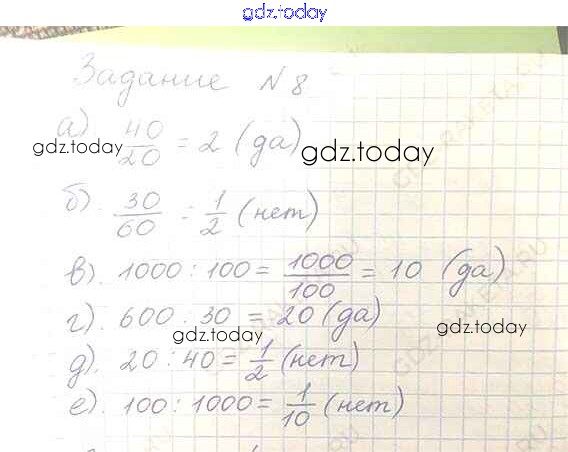 gdz.today
Задание №8
а). 40/20 = 2 (да)
gdz.today gdz.today
б). 30/60 = 1/2 (нет)
в). 1000 : 100 = 1000/100 = 10 (да)
г). 600 : 30 = 20 (да)
gdz.today gdz.today
д). 20 : 40 = 1/2 (нет)
е). 100 : 1000 = 1/10 (нет)